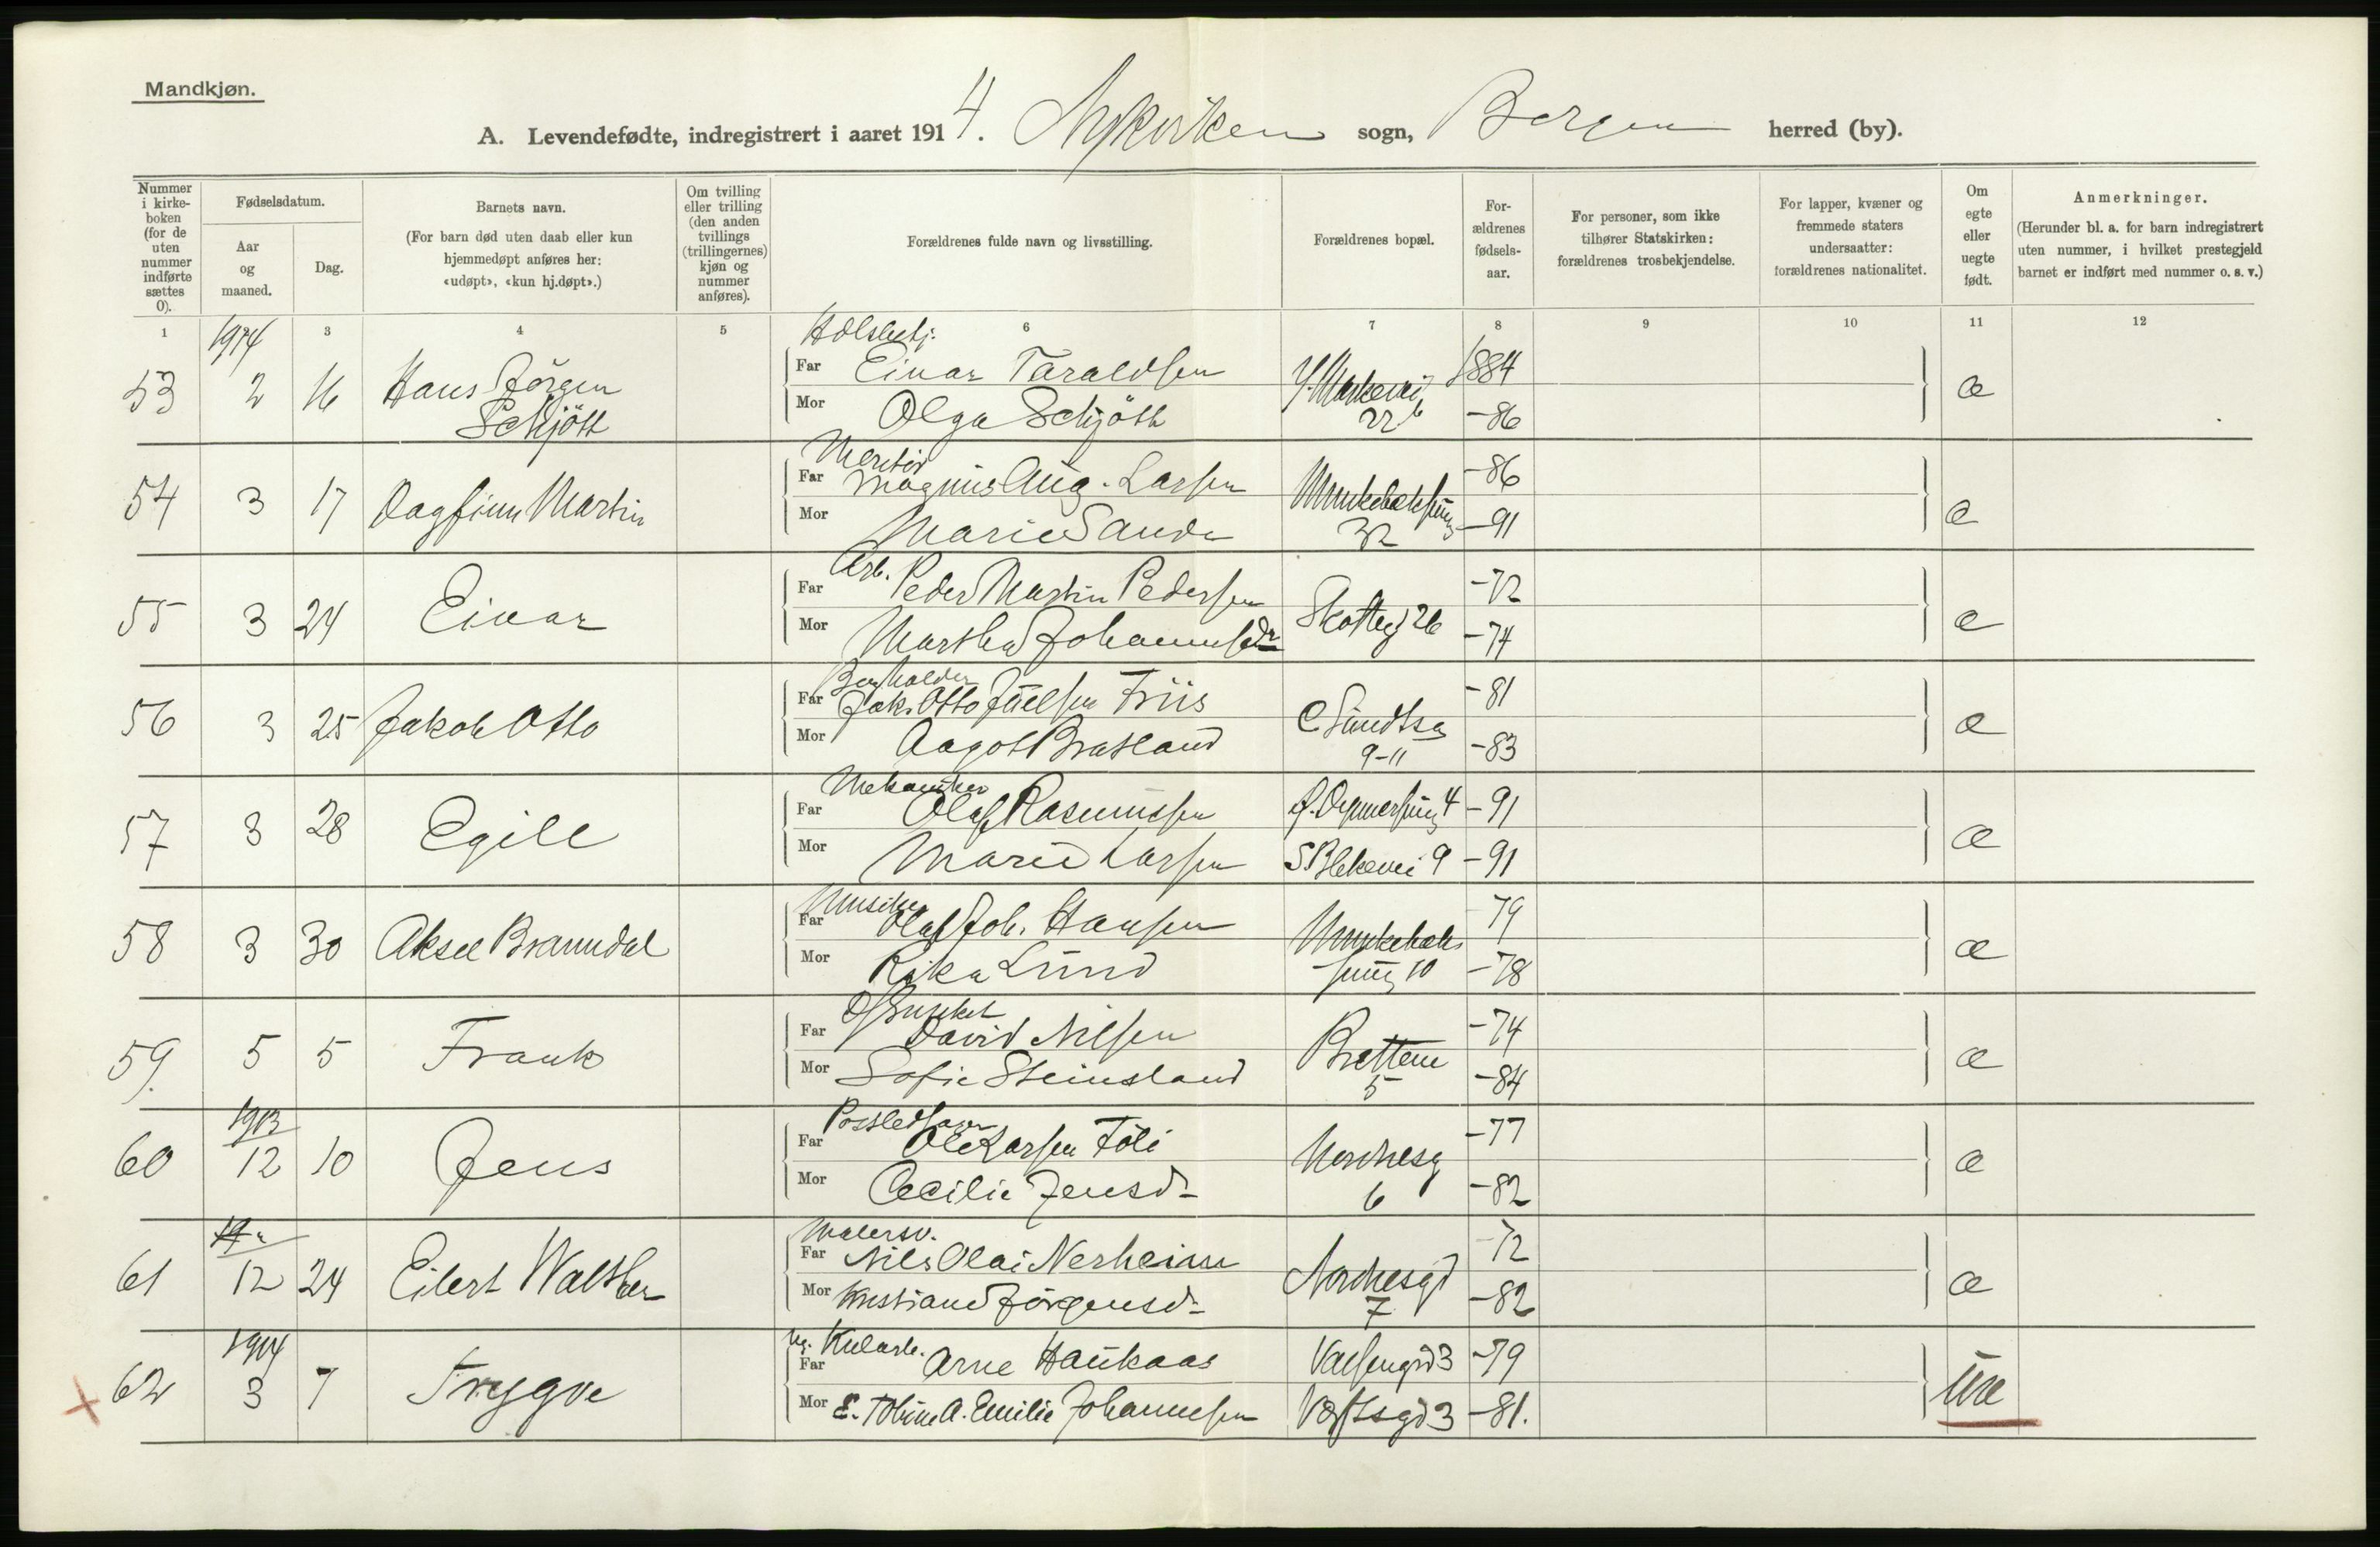 Mandkjøn.
A. Levendefødte, indregistrert i aaret 1914. Nykirken sogn, Bergen herred (by).
Nummer i kirkeboken (for de uten nummer indførte sættes 0).
Fødselsdatum.
Aar og maaned.
Dag.
Barnets navn.
(For barn død uten daab eller kun hjemmedøpt anføres her: «udøpt», «kun hj.døpt».)
Om tvilling eller trilling (den anden tvillings (trillingernes) kjøn og nummer anføres).
Forældrenes fulde navn og livsstilling.
Forældrenes bopæl.
Forældrenes fødselsaar.
For personer, som ikke tilhører Statskirken: forældrenes trosbekjendelse.
For lapper, kvæner og fremmede staters undersaatter: forældrenes nationalitet.
Om egte eller uegte født.
Anmerkninger.
(Herunder bl. a. for barn indregistrert uten nummer, i hvilket prestegjeld barnet er indført med nummer o. s. v.)
1 3 4 5 6 7 8 9 10 11 12
1914
53 2 16 Hans Jörgen Schjött
Far Einar Taraldsen 1884
Mor Olga Schjött 22b -86
æ
54 3 17 Dagfinn Martin
Far Magnus Aug. Larsen -86
Mor Marie Sande 32 -91
æ
55 3 24 Einar
Arb.
Far Peder Martin Pedersen Skotteg 26 -72
Mor Martha Johannesdr -74
æ
56 3 25 Jakob Otto
Far Jak. Otto Juelsen Friis C Sundtsg -81
Mor Aagot Bratland 9-11 -83
æ
57 3 28 Egill
Mekaniker
Far Olaf Rasmussen -91
Mor Marie Larsen S Blekevei 9 -91
æ
58 3 30 Aksel Bramdal
Musiker
Far Olaf Joh. Hansen 79
Mor Rika Lund 10 -78
æ
59. 5 5 Frank
Far David Nilsen -74
Mor Sofie Steinsland 5 -84
æ
1913
60 12 10 Jens
Far Ole Larsen Föli Nordnesg -77
Mor Cecilie Jensd- 6 -82
æ
61 12 24 Eilert Walther
Malersv.
Far Nils Olai Nerheim Nordnesgd -72
Mor Kristiane Jörgensd- 7 -82
æ
1914
62 3 7 Trygve
Far Arne Haukaas 3 -79
Mor E. Tobine A. Emilie Johannesen 3 -81.
uæ